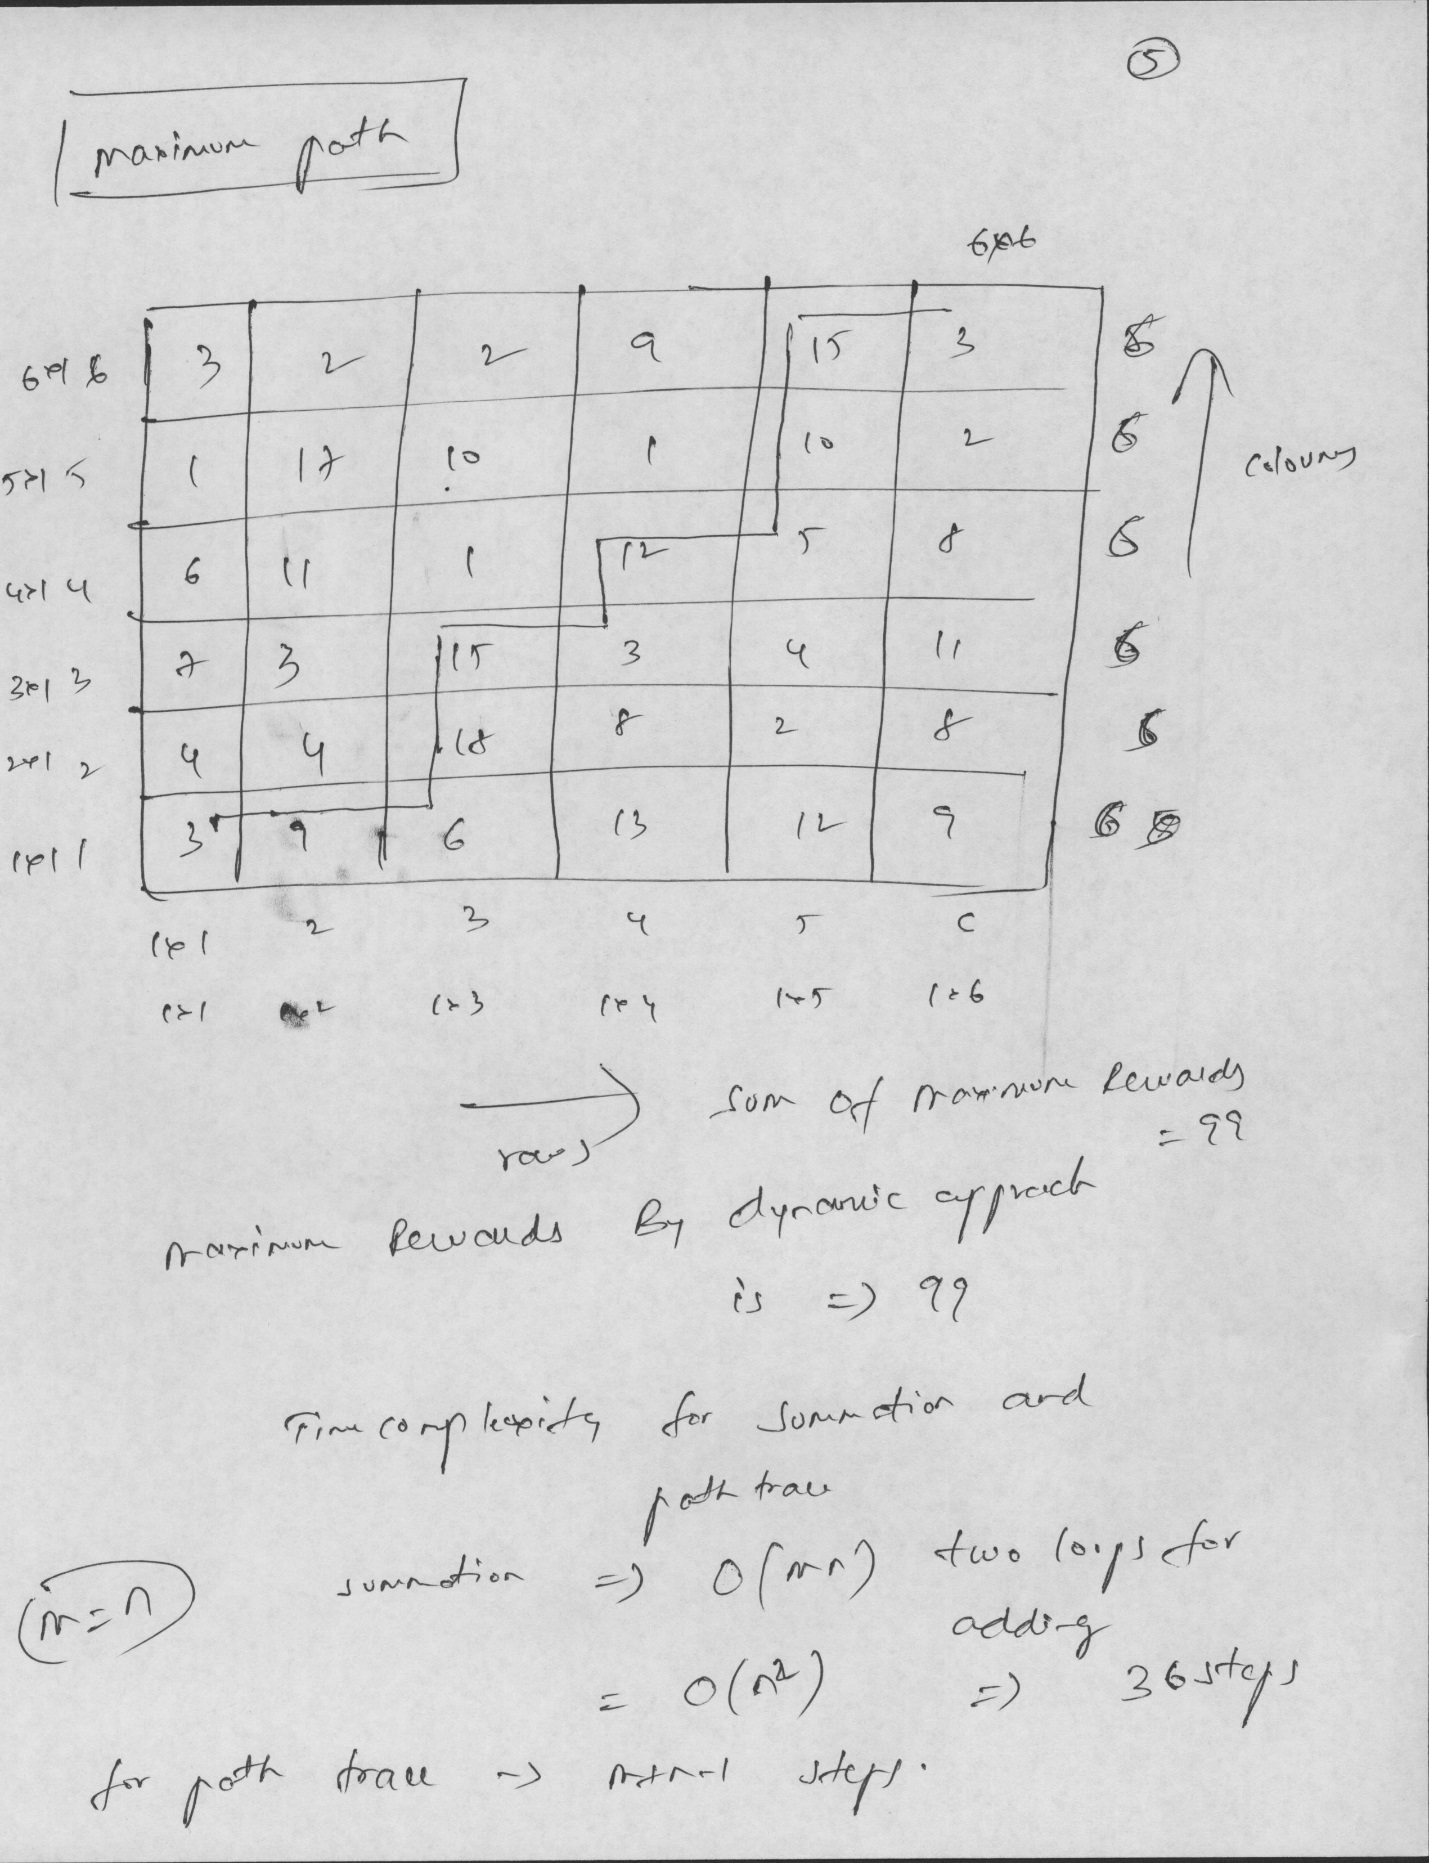 5
Maximum path
6x6
6x1 6 3 2 2 9 15 3 6
5x1 5 1 17 10 1 10 2 6
coloumns
4x1 4 6 11 1 12 5 8 6
3x1 3 7 3 15 3 4 11 6
2x1 2 4 4 18 8 2 8 6
1x1 1 3 9 6 13 12 9 6
1x1 2 3 4 5
1x1 1x3 1x4 1x5 1x6
rows
Sum of Maximum Rewards
= 99
Maximum Rewards By dynamic approach
is => 99
Time complexity for summation and
path trace
summation => O(mn) two loops for
adding
m=n
= O(n²) => 36 steps
for path trace => m+n-1 steps.